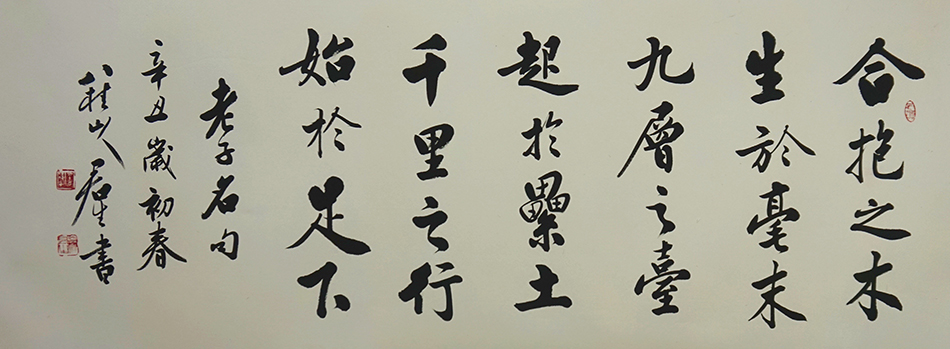 合抱之木
生於毫末
九層之臺
起於纍土
千里之行
始於足下
老子名句
辛丑歲初春
八桂山人君生書